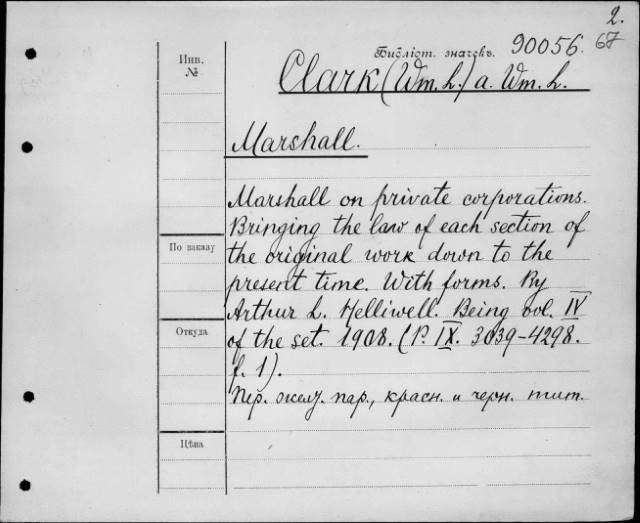 2.
Инв. №
Библіот. значекъ. 90056. 67
Clark (Wm. L.) a. Wm. L.
Marshall.
Marshall on private corporations.
Bringing the law of each section of
По заказу
the original work down to the
present time. With forms. By
Arthur L. Helliwell. Being vol. IV
Откуда
of the set. 1908. (P. IX. 3039-4298.
f. 1).
Пер. желт. пар., красн. и черн. тит.
Цѣна